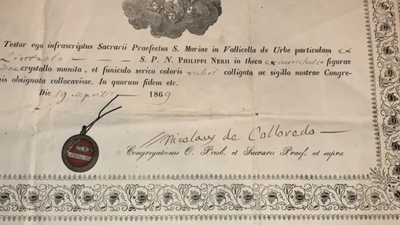 Testor ego infrascriptus Sacrarii Præfectus S. Mariæ in Vallicella de Urbe particulam ex
S. P. N. PHILIPPI NERII in theca figuræ
crystallo munita, et funiculo serico coloris rubri colligata ac sigillo nostræ Congre-
nis obsignata collocavisse. In quorum fidem etc.
Die 19 Aprilis 1869
Nicolaus de Colloredo
Congregationis O. Presb. et Sacrarii Præf. ut supra